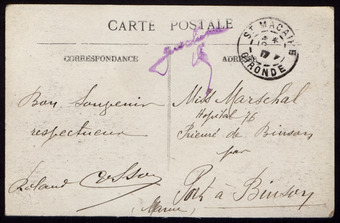 CARTE POSTALE
CORRESPONDANCE
ST MACAIRE
GIRONDE
Bon Souvenir
respectueux
Roland
Miss Marshal
Hopital 76
Prieuré de Binson
par
Port à Binson
(Marne)